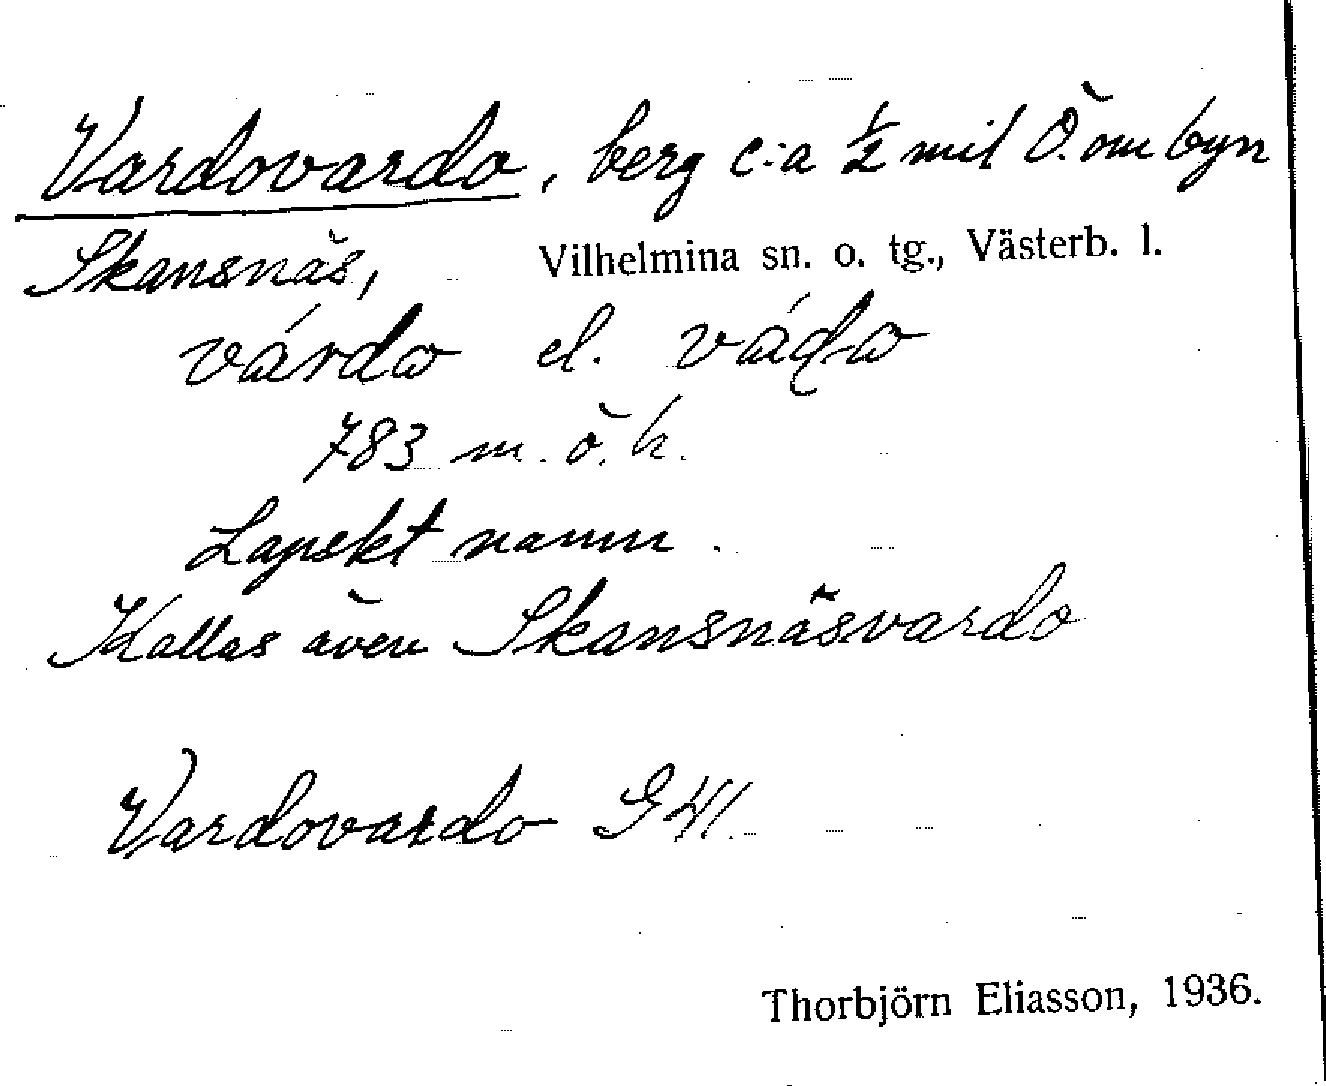 Vardovardo, berg c:a ½ mil Ö. om byn
Skansnäs, Vilhelmina sn. o. tg., Västerb. l.
várdω el. váḍω
783 m. ö. h.
Lapskt namn.
Kallas även Skansnäsvardo
Vardovardo G
Thorbjörn Eliasson, 1936.